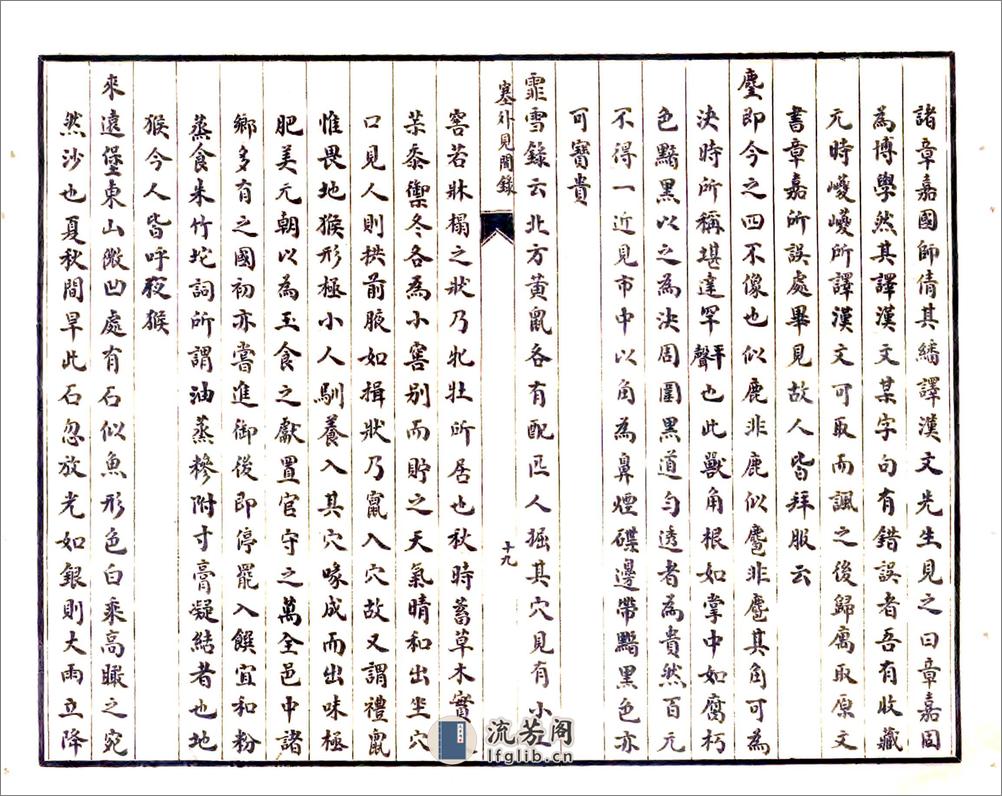 諸章嘉國師倩其繙譯漢文先生見之曰章嘉固
為博學然其譯漢文某字句有錯誤者吾有收藏
元時巙巙所譯漢文可取而諷之後歸寓取原文
書章嘉所誤處畢見故人皆拜服云
麈即今之四不像也似鹿非鹿似麞非麞其角可為
決時所稱堪達罕平聲也此獸角根如掌中如腐朽
色黯黑以之為決周圍黑道勻透者為貴然百元
不得一近見市中以角為鼻煙碟邊帶黯黑色亦
可寶貴
霏雪錄云北方黃鼠各有配匹人掘其穴見有小
塞外見聞錄
十九
窖若牀榻之狀乃牝牡所居也秋時蓄草木實
菽黍禦冬各為小窖别而貯之天氣晴和出坐穴
口見人則拱前腋如揖狀乃竄入穴故又謂禮鼠
惟畏地猴形極小人馴養入其穴喙成而出味極
肥美元朝以為玉食之獻置官守之萬全邑中諸
鄉多有之國初亦嘗進御後即停罷入饌宜和粉
蒸食朱竹坨詞所謂油蒸糝附寸膏凝結者也地
猴今人皆呼夜猴
來遠堡東山微凹處有石似魚形色白乘高瞰之宛
然沙也夏秋間旱此石忽放光如銀則大雨立降
流芳阁
lfglib.cn